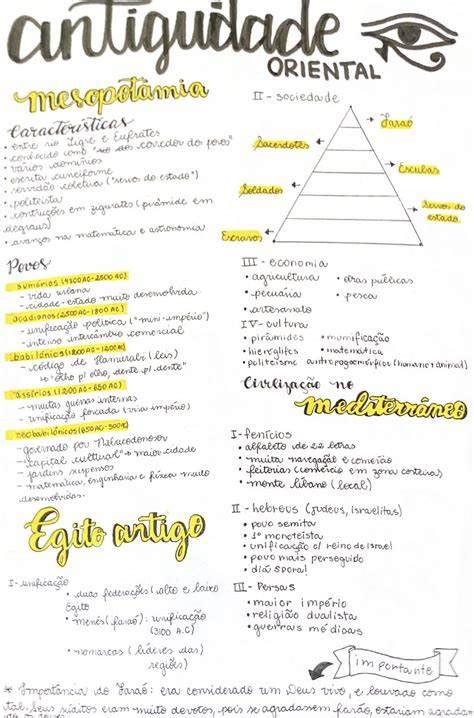 antiguidade
ORIENTAL
mesopotâmia
Características
• entre rio Tigre e Eufrates
• conhecido como "corredor dos povos"
• vários domínios
• escrita cuneiforme
• servidão coletiva ("servos do estado")
• politeísta
• contruções em zigurates (pirâmide em degraus)
• avanços na matemática e astronomia
Povos
sumérios (4500 AC-2500 AC)
- vida urbana
- cidade-estado muito desenvolvida
acadianos (2500AC-1800 AC)
- unificação política ("mini-império")
- intenso intercâmbio comercial
babilônios (1800AC-1200AC)
- código de Hamurabi (leis)
"olho p/ olho, dente p/ dente"
assírios (1200AC-650 AC)
- muitas guerras internas
- unificação forçada (vira império)
neobabilônios (650AC-500AC)
- governado por Nabucodonosor
- "capital cultural" → maior cidade
- jardins suspensos
- matemática, engenharia e física muito desenvolvidas.
Egito antigo
I - unificação
• duas federações (alto e baixo Egito
• menés (faraó): unificação (3100 A.C)
• nomarcas (líderes das regiões)
II - sociedade
Faraó
Sacerdotes
Escribas
Soldados
Servos do estado
Escravos
III - economia
• agricultura • obras públicas
• pecuária • pesca
• artesanato
IV - cultura
• pirâmides • mumificação
• hieróglifos • matemática
• politeísmo antropogomórfico (humano+animal)
Civilização no
mediterrâneo
I - fenícios
• alfabeto de 22 letras
• muita navegação e comércio
• feitorias (comércio em zona costeira)
• monte líbano (local)
II - hebreus (judeus, israelitas)
• povo semita
• 1º monoteísta
• unificação c/ reino de Israel
• povo mais perseguido
• diáspora!
III - Persas
• maior império
• religião dualista
• guerras médicas
importante
* Importância do Faraó: era considerado um Deus vivo, e louvado como
tal. Seus súditos eram muito devotos, pois se agradassem faraó, estariam agradan